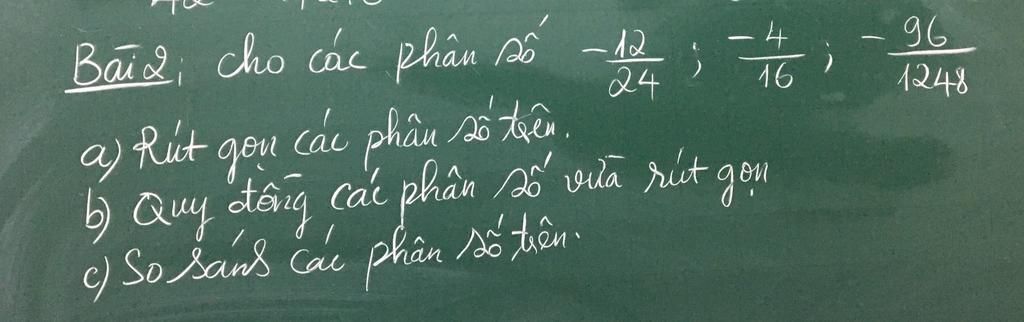 Bài 2: cho các phân số -12/24 ; -4/16 ; -96/1248
a) Rút gọn các phân số trên.
b) Quy đồng các phân số vừa rút gọn
c) So sánh các phân số trên.